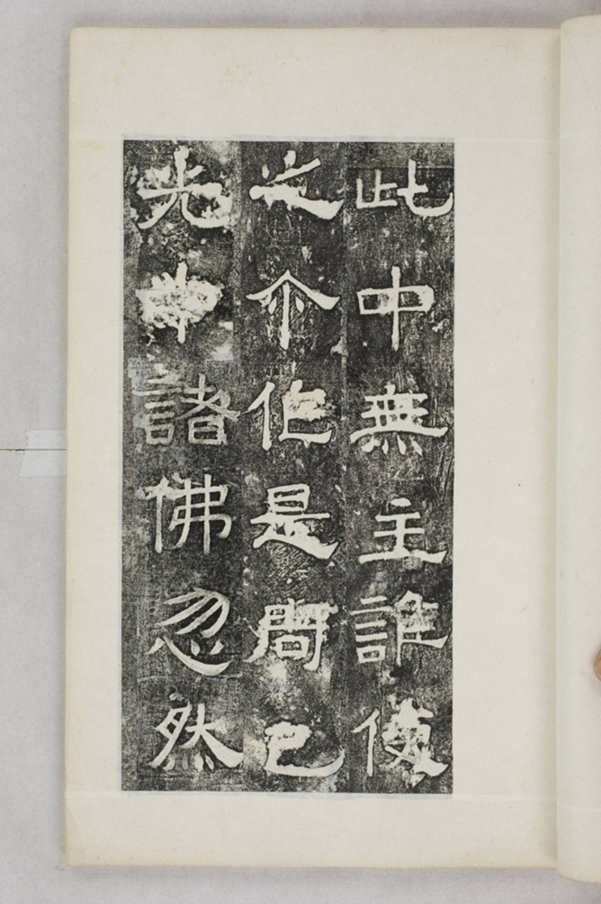 此中無主誰使
之尒作是問已
光中諸佛忽然